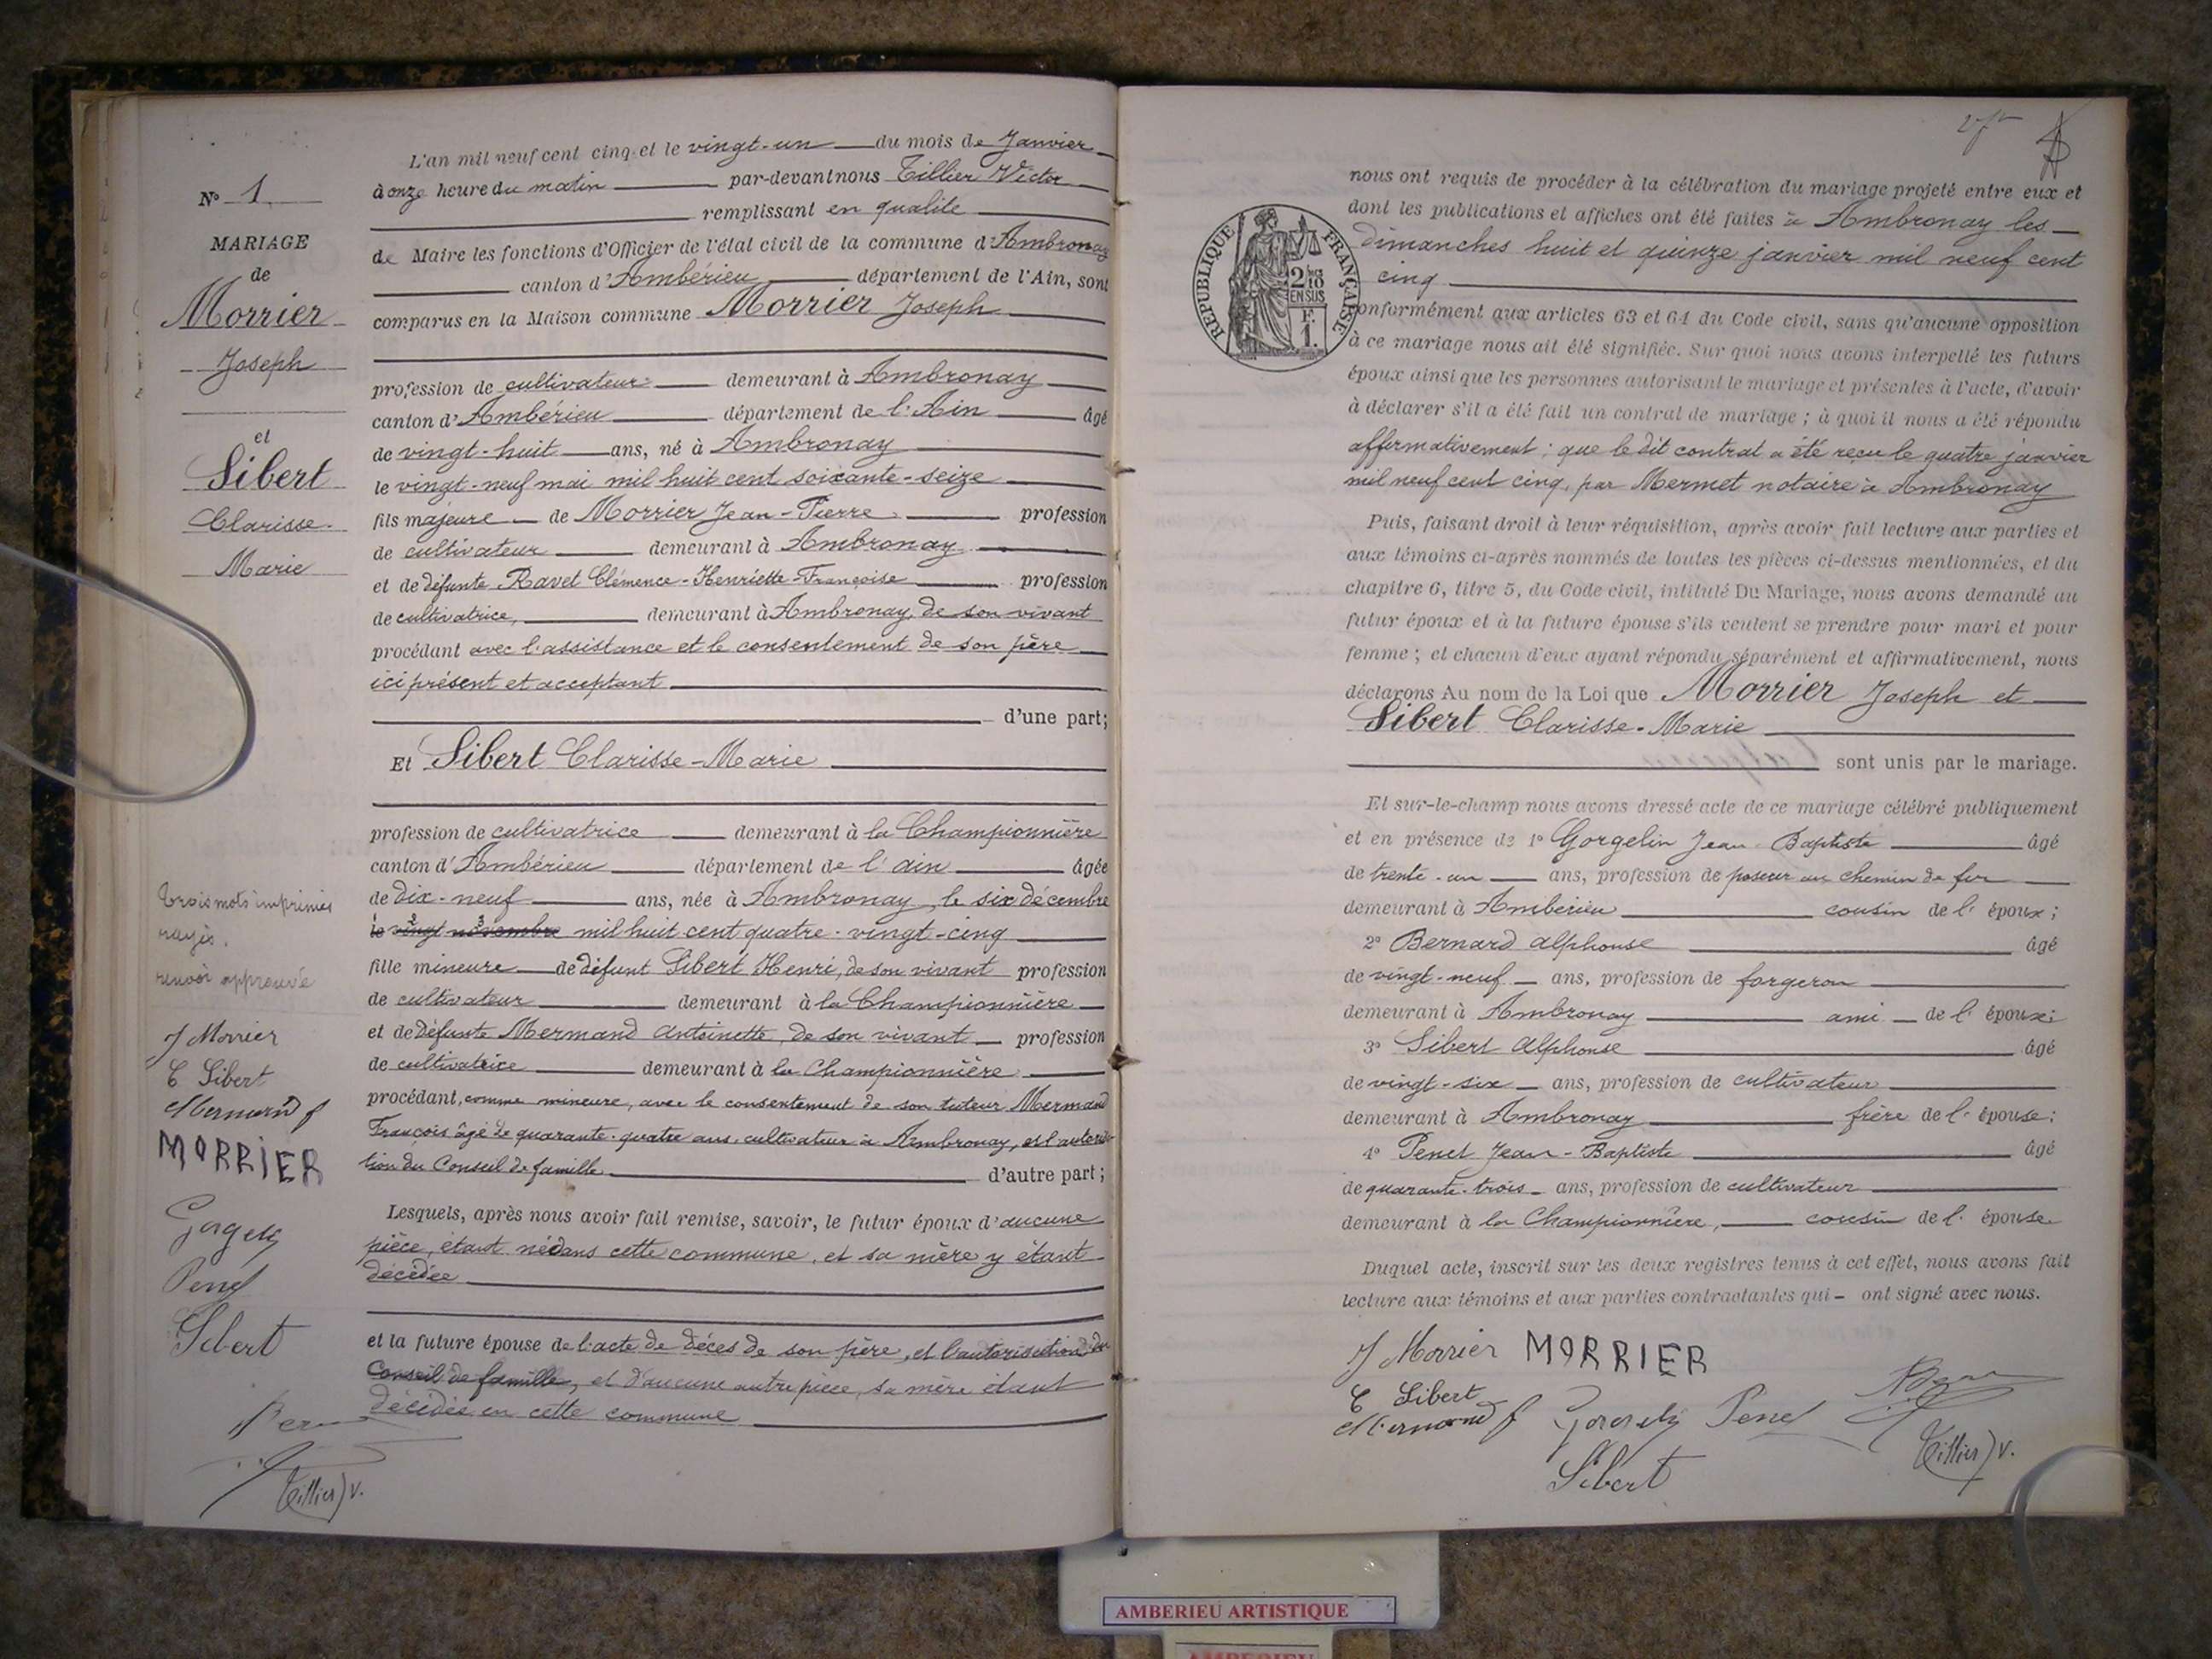 N° 1
MARIAGE
de
Morrier
Joseph
et
Sibert
Clarisse
Marie
Trois mots imprimés
rayés.
renvoi approuvé
J Morrier
C Sibert
MORRIER
Penel
Sibert
Tillier V.
L'an mil neuf cent cinq et le vingt-un du mois de Janvier
à onze heure du matin par-devant nous Tillier Victor
remplissant en qualité
de Maire les fonctions d'Officier de l'état civil de la commune d'Ambronay
canton d'Ambérieu département de l'Ain, sont
comparus en la Maison commune Morrier Joseph
profession de cultivateur demeurant à Ambronay
canton d'Ambérieu département de l'Ain âgé
de vingt-huit ans, né à Ambronay
le vingt-neuf mai mil huit cent soixante-seize
fils majeure de Morrier Jean-Pierre profession
de cultivateur demeurant à Ambronay
et de défunte Ravet Clémence-Henriette-Françoise profession
de cultivatrice, demeurant à Ambronay, de son vivant
procédant avec l'assistance et le consentement de son père
ici présent et acceptant
d'une part;
Et Sibert Clarisse-Marie
profession de cultivatrice demeurant à la Championnière
canton d'Ambérieu département de l'ain âgée
de dix-neuf ans, née à Ambronay, le six décembre
le vingt novembre mil huit cent quatre-vingt-cinq
fille mineure de défunt Sibert Henri, de son vivant profession
de cultivateur demeurant à la Championnière
et de défunte Mermand Antoinette, de son vivant profession
de cultivatrice demeurant à la Championnière
procédant, comme mineure, avec le consentement de son tuteur Mermand
François âgé de quarante-quatre ans, cultivateur à Ambronay, et l'autorisa-
tion du Conseil de famille d'autre part;
Lesquels, après nous avoir fait remise, savoir, le futur époux d'aucune
pièce, étant né dans cette commune, et sa mère y étant
décédée
et la future épouse de l'acte de décès de son père, et l'autorisation du
Conseil de famille, et d'aucune autre pièce, sa mère étant
décédée en cette commune
nous ont requis de procéder à la célébration du mariage projeté entre eux et
dont les publications et affiches ont été faites à Ambronay les
dimanches huit et quinze janvier mil neuf cent
cinq
conformément aux articles 63 et 64 du Code civil, sans qu'aucune opposition
à ce mariage nous ait été signifiée. Sur quoi nous avons interpellé les futurs
époux ainsi que les personnes autorisant le mariage et présentes à l'acte, d'avoir
à déclarer s'il a été fait un contrat de mariage; à quoi il nous a été répondu
affirmativement; que le dit contrat a été reçu le quatre janvier
mil neuf cent cinq, par Mermet notaire à Ambronay
Puis, faisant droit à leur réquisition, après avoir fait lecture aux parties et
aux témoins ci-après nommés de toutes les pièces ci-dessus mentionnées, et du
chapitre 6, titre 5, du Code civil, intitulé Du Mariage, nous avons demandé au
futur époux et à la future épouse s'ils veulent se prendre pour mari et pour
femme; et chacun d'eux ayant répondu séparément et affirmativement, nous
déclarons Au nom de la Loi que Morrier Joseph et
Sibert Clarisse-Marie
sont unis par le mariage.
Et sur-le-champ nous avons dressé acte de ce mariage célébré publiquement
et en présence de 1° Gorgelin Jean Baptiste âgé
de trente-un ans, profession de poseur au chemin de fer
demeurant à Ambérieu cousin de l'époux;
2° Bernard Alphonse âgé
de vingt-neuf ans, profession de forgeron
demeurant à Ambronay ami de l'époux;
3° Sibert Alphonse âgé
de vingt-six ans, profession de cultivateur
demeurant à Ambronay frère de l'épouse;
4° Penel Jean-Baptiste âgé
de quarante-trois ans, profession de cultivateur
demeurant à la Championnière, cousin de l'épouse
Duquel acte, inscrit sur les deux registres tenus à cet effet, nous avons fait
lecture aux témoins et aux parties contractantes qui ont signé avec nous.
J Morrier MORRIER
C Sibert
Penel
Tillier V.
Sibert
RÉPUBLIQUE FRANÇAISE
2/10 EN SUS
F. 1.
AMBERIEU ARTISTIQUE
AMBERIEU